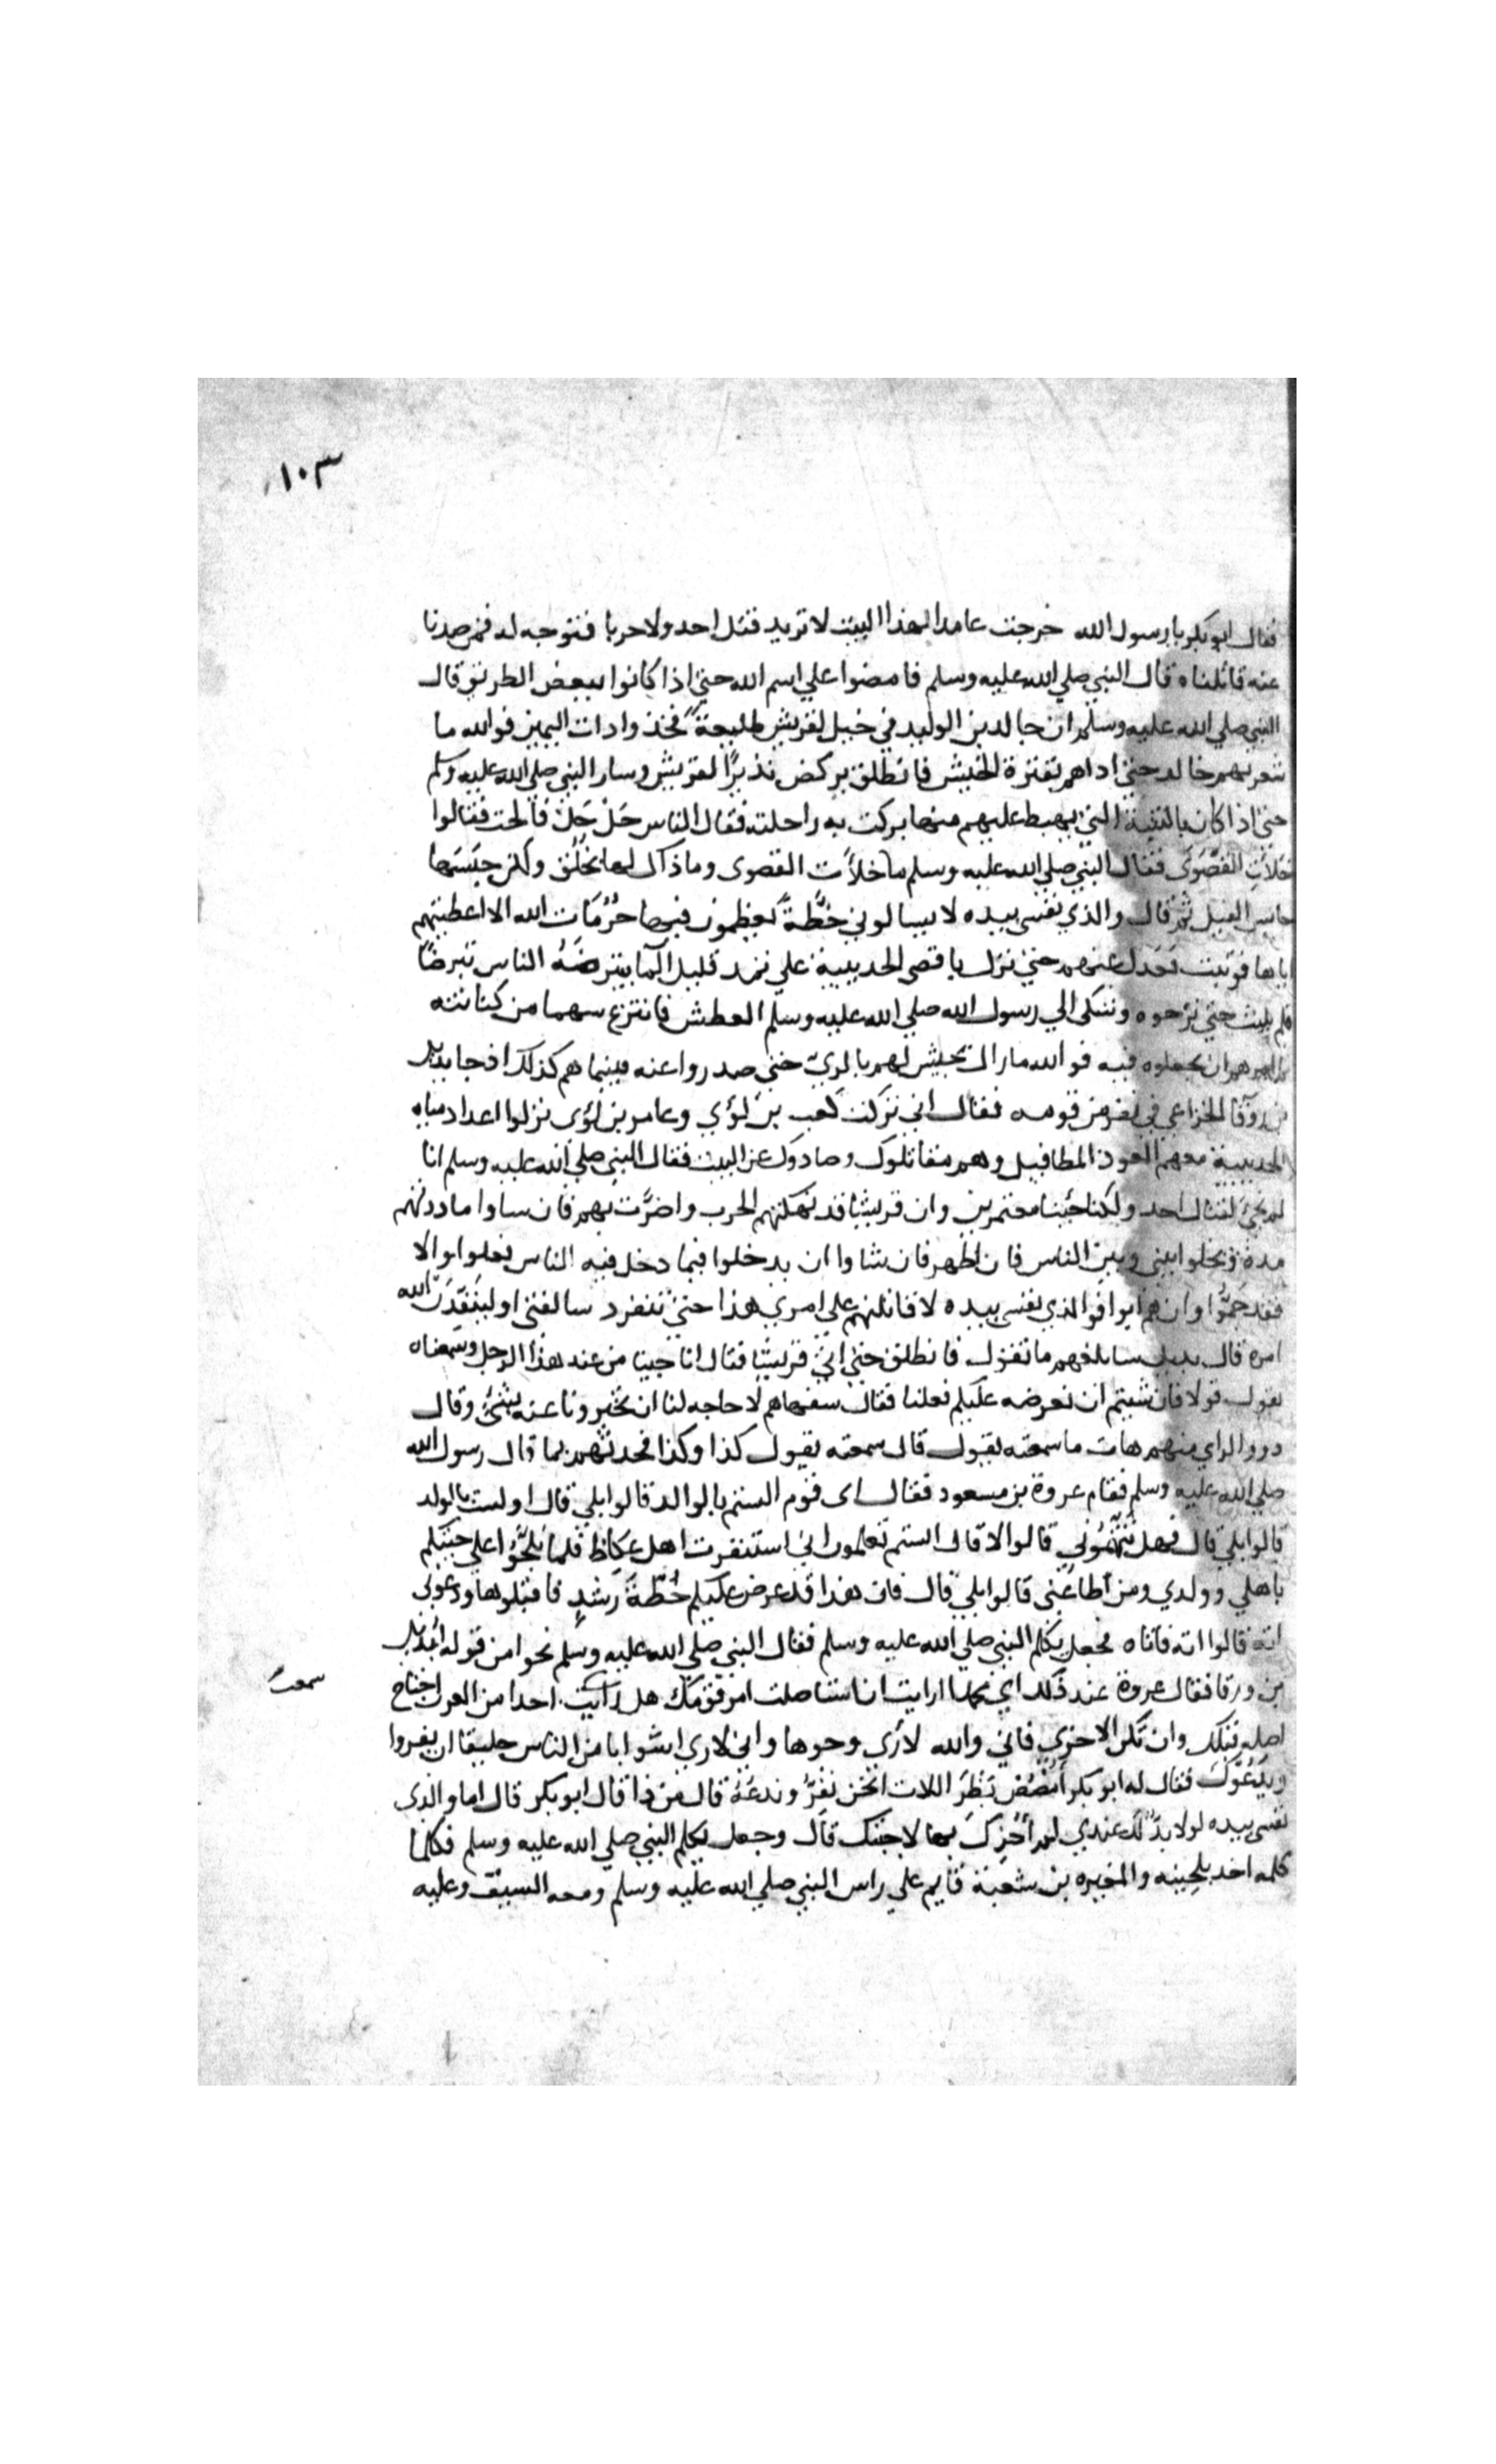 ١٠٣
فقال ابو بكر يا رسول الله خرجت عامدا لهذا البيت لا تريد قتل احد ولا حربا فتوجه له فمن صدنا
عنه قاتلناه قال النبي صلي الله عليه وسلم فامضوا علي اسم الله حتي اذا كانوا ببعض الطريق قال
النبي صلي الله عليه وسلم ان خالد بن الوليد في خيل لقريش طليعة فخذوا ذات اليمين فوالله ما
شعر بهم خالد حتي اذا هم بقترة الجيش فانطلق يركض نذيرًا لقريش وسار النبي صلي الله عليه وسلم
حتي اذا كان بالثنية التي يهبط عليهم منها بركت به راحلته فقال الناس حَلْ حَلْ فالحت فقالوا
خلات القصوى فقال النبي صلي الله عليه وسلم ما خلأت القصوى وما ذاك لها بخلق ولكن حبسها
حابس الفيل ثم قال والذي نفسي بيده لا يسالوني خطّةً يعظمون فيها حُرُمَات الله الا اعطيتهم
اياها فوثبت فعدل عنهم حتي نزل باقصى الحديبية علي ثمد قليل المآ يتبرضَهُ الناس تبرضًا
فلم يلبث حتي نزحوه وشكى الي رسول الله صلي الله عليه وسلم العطش فانتزع سهما من كنانته
ثم امرهم ان يجعلوه فيه فوالله ما زال يجيش لهم بالري حتى صدروا عنه فبينما هم كذلك اذ جا بديل
بن ورقا الخزاعي في نفر من قومه فقال اني تركت كعب بن لؤي وعامر بن لؤى نزلوا اعداد مياه
الحديبية معهم العوذ المطافيل وهم مقاتلوك وصادوك عن البيت فقال النبي صلي الله عليه وسلم انا
لم نجئ لقتال احد ولكنا جئنا معتمرين وان قريشا قد نهكتهم الحرب واضرّت بهم فان ساوا ماددتهم
مدة ويخلوا بيني وبين الناس فان اظهر فان شاوا ان يدخلوا فيما دخل فيه الناس فعلوا والا
فقد جَمُّوا وان هم ابوا فوالذي نفسي بيده لاقاتلنهم علي امري هذا حتي تنفرد سالفتي او لينفذن الله
امره قال بديل سابلغهم ما تقول فانطلق حتي اتى قريشا فقال انا جينا من عند هذا الرجل وسمعناه
يقول قولا فان شيتم ان نعرضه عليكم فعلنا فقال سفهاهم لا حاجه لنا ان تخبرونا عنه بشئ وقال
ذوو الراي منهم هات ما سمعته يقول قال سمعته يقول كذا وكذا فحدثهم بما قال رسول الله
صلي الله عليه وسلم فقام عروة بن مسعود فقال اى قوم الستم بالوالد قالوا بلي قال اولست بالولد
قالوا بلي قال فهل تتهموني قالوا لا قال الستم تعلمون اني استنفرت اهل عكاظ فلما بلحّوا علي جئتكم
باهلي وولدي ومن اطاعني قالوا بلي قال فان هذا قد عرض عليكم خُطّةَ رُشدٍ فاقبلوها ودعوني
اته قالوا اته فاتاه فجعل يكلم النبي صلي الله عليه وسلم فقال النبي صلي الله عليه وسلم نحوا من قوله لبديل
بن ورقا فقال عروة عند ذلك اي محمد ارايت ان استاصلت امر قومك هل رايت احدا من العرب اجتاح
سمعت
اصله قبلك وان تكن الاخرى فاني والله لأرى وجوها واني لارى اشوابا من الناس خليقا ان يفروا
ويَدَعُوك فقال له ابو بكر أمصُص بَظْرَ اللات انحن نفرُّ وندعُهُ قال من ذا قال ابو بكر قال اما والذى
نفسي بيده لولا يدٌ لك عندي لم أجزِكَ بها لاجبتك قال وجعل يكلم النبي صلي الله عليه وسلم فكلما
كلمه اخذ بلحيته والمغيره بن شعبة قايم علي راس النبي صلي الله عليه وسلم ومعه السيف وعليه